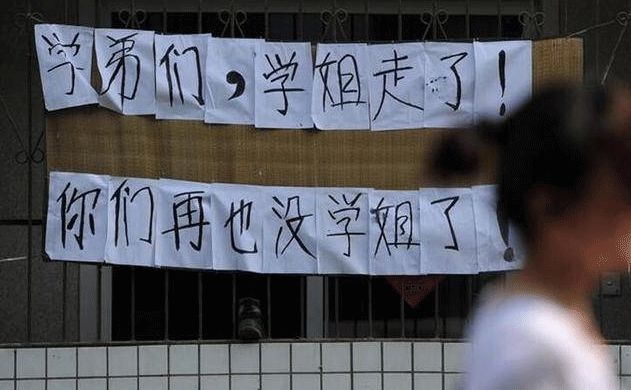 学弟们，学姐走了！
你们再也没学姐了！